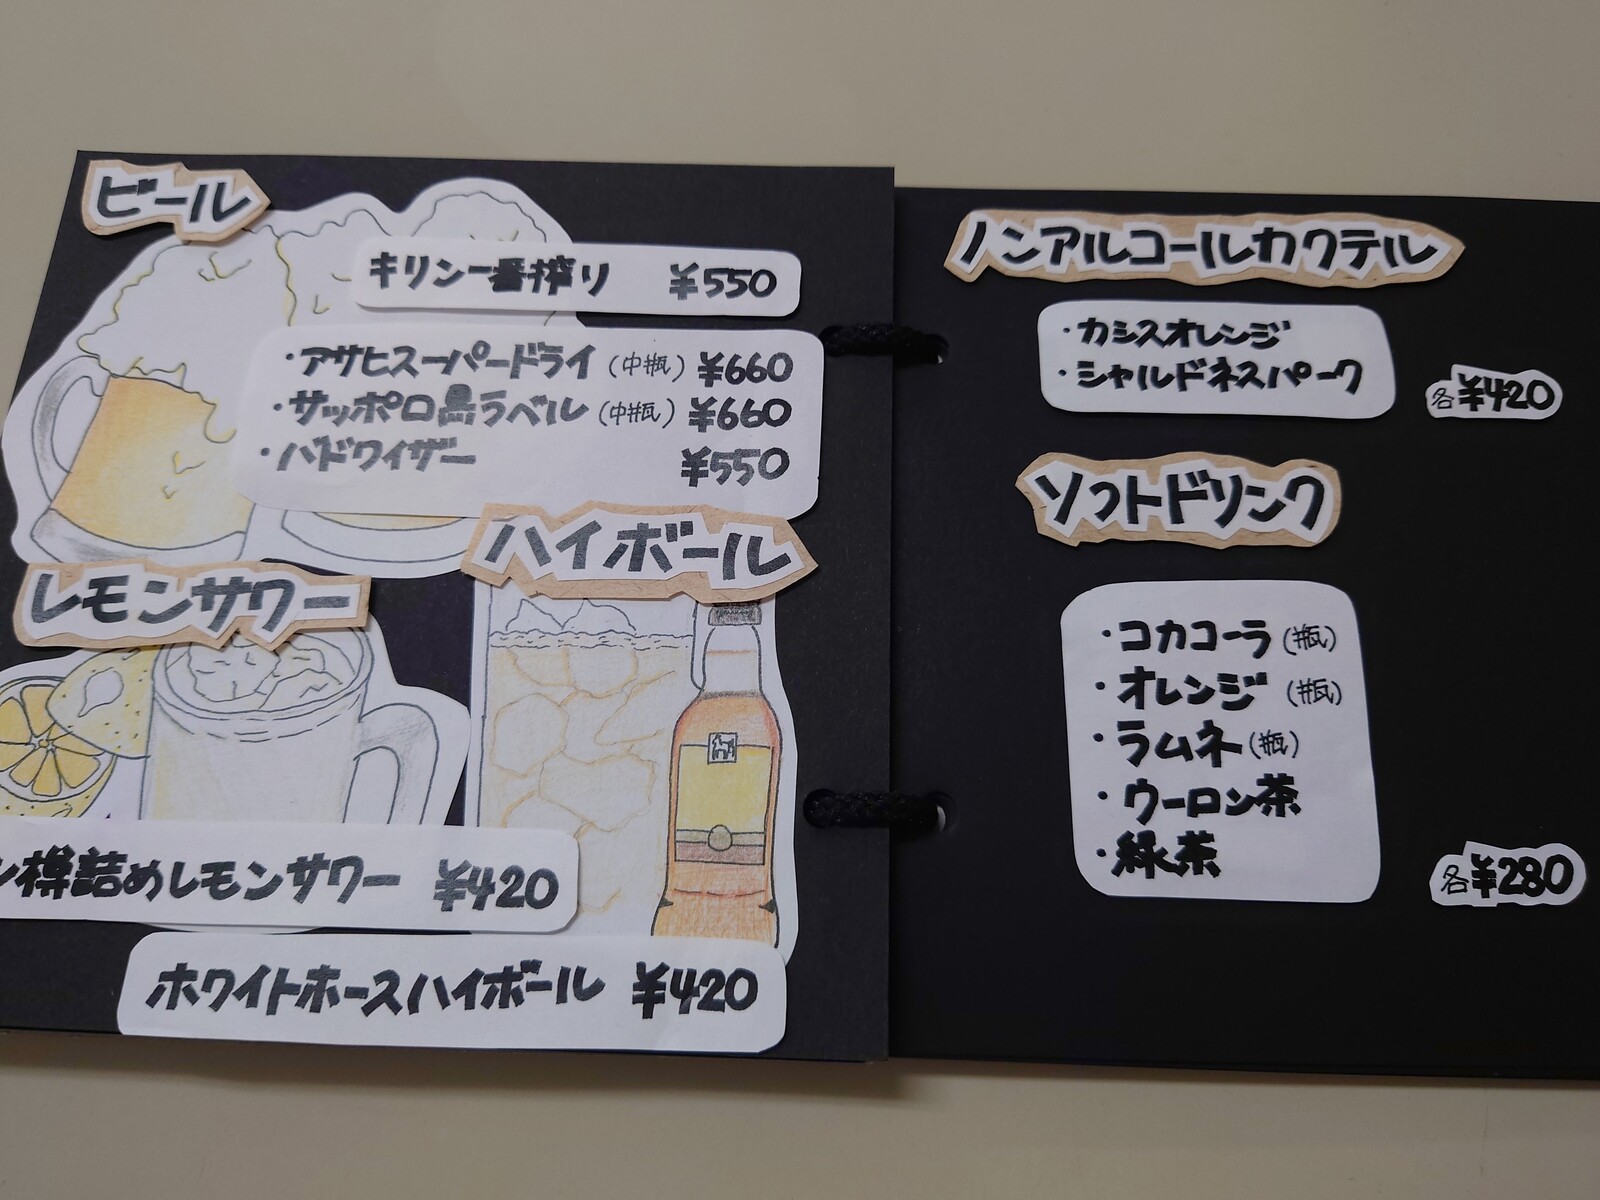 ビール
キリン一番搾り ¥550
・アサヒスーパードライ（中瓶）¥660
・サッポロ黒ラベル（中瓶）¥660
・バドワイザー ¥550
ハイボール
レモンサワー
ン樽詰めレモンサワー ¥420
ホワイトホースハイボール ¥420
ノンアルコールカクテル
・カシスオレンジ
・シャルドネスパーク
各¥420
ソフトドリンク
・コカコーラ（瓶）
・オレンジ（瓶）
・ラムネ（瓶）
・ウーロン茶
・緑茶
各¥280